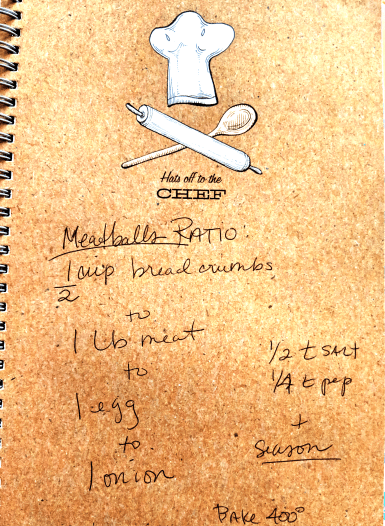 Hats off to the
CHEF
Meatballs RATIO:
1/2 cup breadcrumbs
to
1 Lb meat
to
1 egg
to
1 onion
1/2 t SALT
1/4 t pep
+
season
BAKE 400°